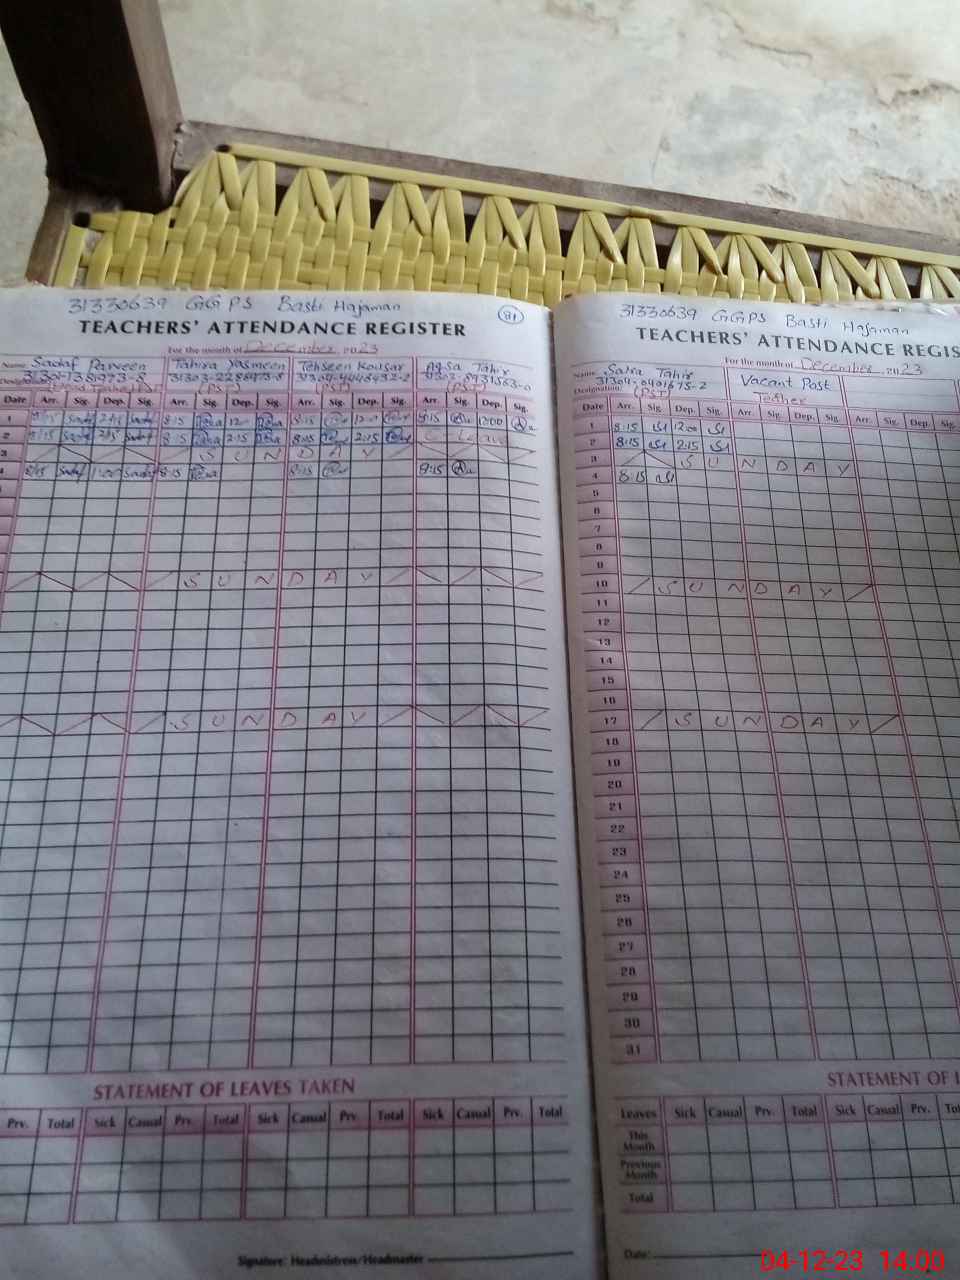 31330639 GGPS Basti Hajaman
81
TEACHERS' ATTENDANCE REGISTER
For the month of December 2023
Name Sadaf Parveen Tahira Yasmeen Tehseen Kousar Aqsa Tahir
(PST)
Date Arr. Sig. Dep. Sig. Arr. Sig. Dep. Sig. Arr. Sig. Dep. Sig. Arr. Sig. Dep. Sig.
1 8:15 2:15 8:15 12:00 8:15 12:00 8:15 12:00
2 8:15 2:15 8:15 2:15 8:15 2:15 C-Leave
3 SUNDAY
4 8:15 1:00 8:15 8:15 8:15
SUNDAY
SUNDAY
STATEMENT OF LEAVES TAKEN
Prv. Total Sick Casual Prv. Total Sick Casual Prv. Total Sick Casual Prv. Total
Signature: Headmistress/Headmaster
31330639 GGPS Basti Hajaman
TEACHERS' ATTENDANCE REGIS
For the month of December 2023
Name: Saira Tahir Vacant Post
31304-0401675-2
Designation: (PST)
Date Arr. Sig. Dep. Sig. Arr. Sig. Dep. Sig. Arr. Sig. Dep.
1 8:15 12:00
2 8:15 2:15
3 SUNDAY
4 8:15
5
6
7
8
10 SUNDAY
11
12
13
14
15
16
17 SUNDAY
18
19
20
21
22
23
24
25
26
27
28
29
30
31
STATEMENT OF L
Leaves Sick Casual Prv. Total Sick Casual Prv. Total
This Month
Previous Month
Total
Date:
04-12-23 14:00